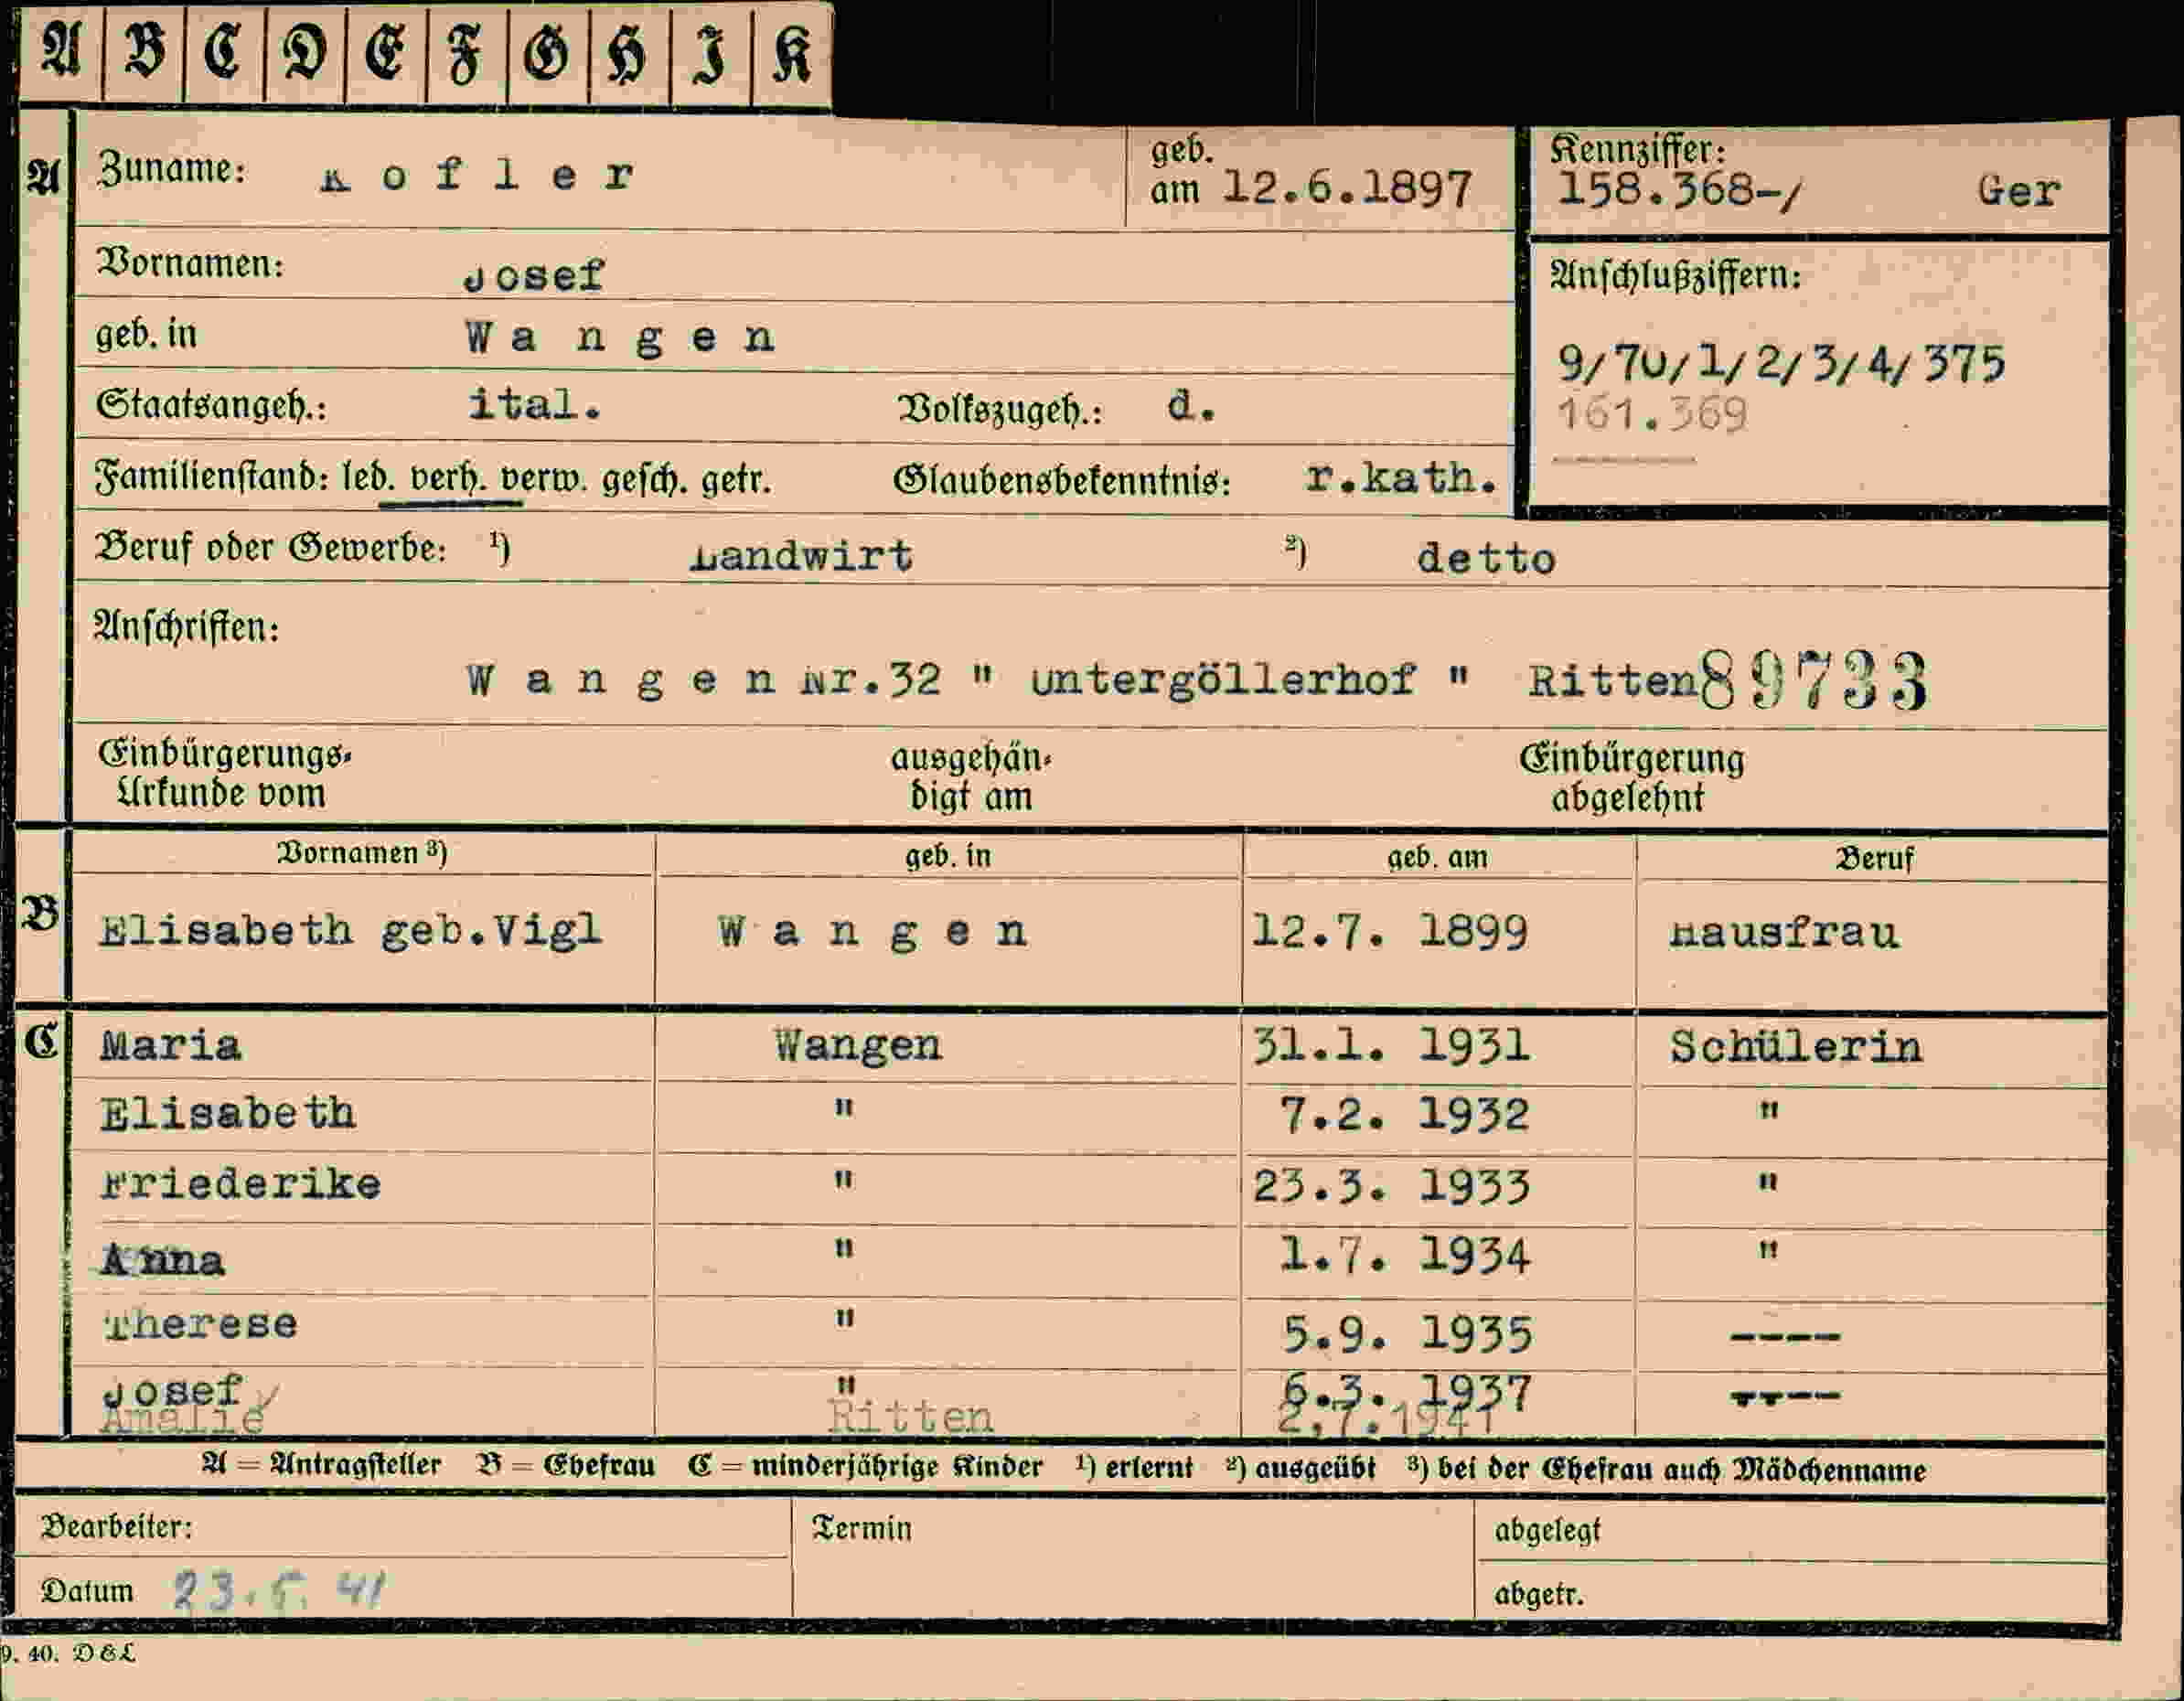 A B C D E F G H I K
A Zuname: Kofler geb. am 12.6.1897 Kennziffer: 158.368-/ Ger
Vornamen: Josef
Anschlußziffern:
geb. in Wangen
9/70/1/2/3/4/375
Staatsangeh.: ital. Volkszugeh.: d.
161.369
Familienstand: led. verh. verw. gesch. getr. Glaubensbekenntnis: r.kath.
Beruf oder Gewerbe: ¹) Landwirt ²) detto
Anschriften:
Wangen Nr.32 " Untergöllerhof " Ritten 89733
Einbürgerungs- Urkunde vom ausgehän- digt am Einbürgerung abgelehnt
Vornamen ³) geb. in geb. am Beruf
B Elisabeth geb.Vigl Wangen 12.7. 1899 Hausfrau
C Maria Wangen 31.1. 1931 Schülerin
Elisabeth " 7.2. 1932 "
Friederike " 23.3. 1933 "
Anna " 1.7. 1934 "
Therese " 5.9. 1935 ----
Josef " 6.3. 1937 ----
Amalie Ritten 2.7.1941
A = Antragsteller B = Ehefrau C = minderjährige Kinder ¹) erlernt ²) ausgeübt ³) bei der Ehefrau auch Mädchenname
Bearbeiter: Termin abgelegt
Datum 23.5.41 abgetr.
9. 40. D&L